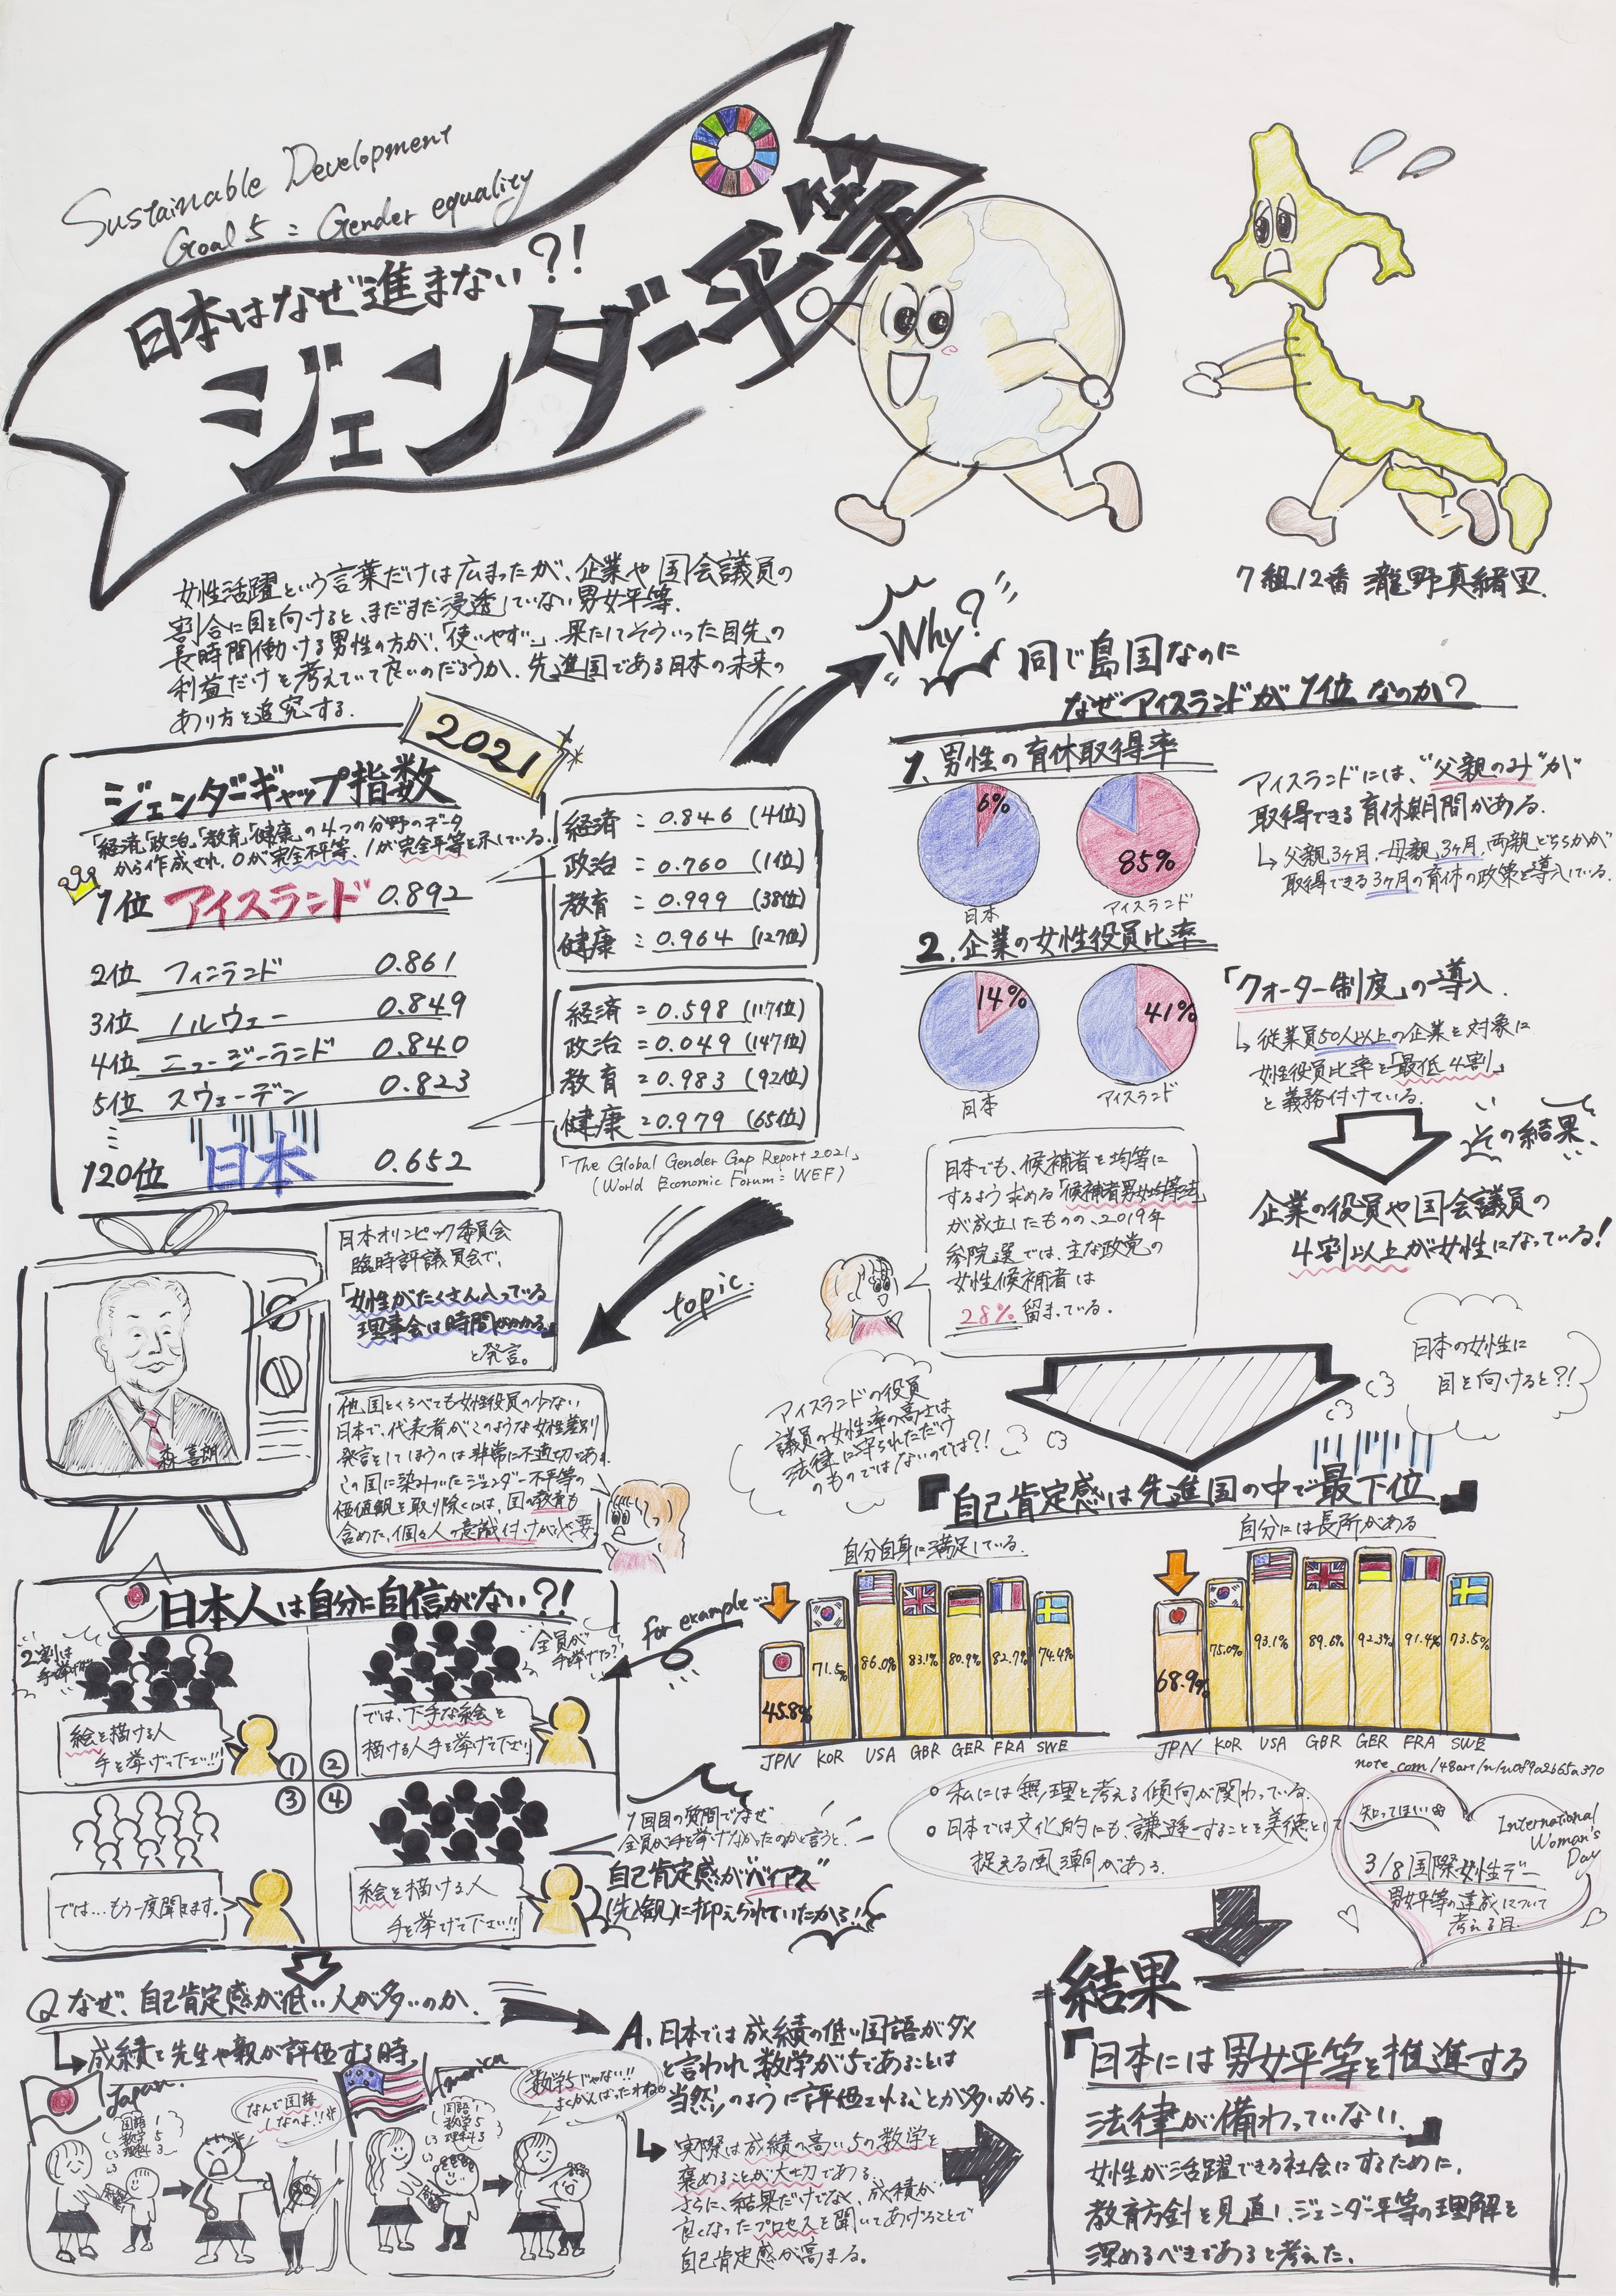 Sustainable Development
Goal 5 = Gender equality
日本はなぜ進まない?!
ジェンダー平等
7組12番 瀧野真緒里
女性活躍という言葉だけは広まったが、企業や国会議員の
割合に目を向けると、まだまだ浸透していない男女平等。
長時間働ける男性の方が、「使いやすい」。果たしてそういった目先の
利益だけを考えていて良いのだろうか。先進国である日本の未来の
あり方を追究する。
2021
ジェンダーギャップ指数
「経済」「政治」、「教育」、「健康」の4つの分野のデータ
から作成され、0が完全不平等、1が完全平等を示している。
1位 アイスランド 0.892
2位 フィンランド 0.861
3位 ノルウェー 0.849
4位 ニュージーランド 0.840
5位 スウェーデン 0.823
120位 日本 0.652
経済 : 0.846 (4位)
政治 : 0.760 (1位)
教育 : 0.999 (38位)
健康 : 0.964 (127位)
経済 = 0.598 (117位)
政治 = 0.049 (147位)
教育 = 0.983 (92位)
健康 = 0.979 (65位)
「The Global Gender Gap Report 2021」
(World Economic Forum : WEF)
Why?
同じ島国なのに
なぜアイスランドが1位なのか?
1. 男性の育休取得率
6%
85%
日本
アイスランド
アイスランドには、"父親のみ"が
取得できる育休期間がある。
父親3ヶ月、母親3ヶ月、両親どちらかが
取得できる3ヶ月の育休の政策を導入している。
2. 企業の女性役員比率
14%
41%
日本
アイスランド
「クォーター制度」の導入
従業員50人以上の企業を対象に
女性役員比率を「最低4割」
と義務付けている。
その結果
企業の役員や国会議員の
4割以上が女性になっている!
日本でも、候補者を均等に
するよう求める「候補者男女均等法」
が成立したものの、2019年
参院選では、主な政党の
女性候補者は
28%留まっている。
topic
日本オリンピック委員会
臨時評議員会で、
「女性がたくさん入っている
理事会は時間がかかる」
と発言。
森喜朗
他国とくらべても女性役員の少ない
日本で、代表者がこのような女性差別
発言をしてしまうのは非常に不適切である。
この国に染みついたジェンダー不平等の
価値観を取り除くには、国の教育も
含めた、個々人の意識付けが必要。
アイスランドの役員
議員の女性率の高さは
法律に守られただけ
のものではないのでは?!
日本の女性に
目を向けると?!
『自己肯定感は先進国の中で最下位』
自分自身に満足している
45.8% 71.5% 86.0% 83.1% 80.9% 82.7% 74.4%
JPN KOR USA GBR GER FRA SWE
自分には長所がある
68.9% 75.0% 93.1% 89.6% 92.3% 91.4% 73.5%
JPN KOR USA GBR GER FRA SWE
for example...
日本人は自分に自信がない?!
2割は
手を挙げず
絵を描ける人
手を挙げて下さい!!
①
全員が
手を挙げた?!
では、下手な絵を
描ける人手を挙げて下さい
②
③
では...もう一度聞きます。
④
絵を描ける人
手を挙げて下さい!!
1回目の質問でなぜ
全員が手を挙げなかったのかと言うと、
自己肯定感が"バイアス"
(先入観)に抑えられていたから!!
・私には無理と考える傾向が関わっている。
・日本では文化的にも、謙遜することを美徳として
捉える風潮がある。
知ってほしい
International
Woman's
Day
3/8国際女性デー
男女平等の達成について
考える日
Q なぜ、自己肯定感が低い人が多いのか。
成績を先生や親が評価する時
Japan
国語 1
数学 5
理科 3
なんで国語
1なのよ!!
America
国語 1
数学 5
理科 3
数学5じゃない!!
よくがんばったわね
A. 日本では成績の低い国語がダメ
と言われ数学が5であることは
当然のように評価されることが多いから。
実際は成績の高い5の数学を
褒めることが大切である
さらに、結果だけでなく、成績が
良くなったプロセスを聞いてあげることで
自己肯定感が高まる。
結果
『日本には男女平等を推進する
法律が備わっていない。』
女性が活躍できる社会にするために、
教育方針を見直し、ジェンダー平等の理解を
深めるべきであると考えた。